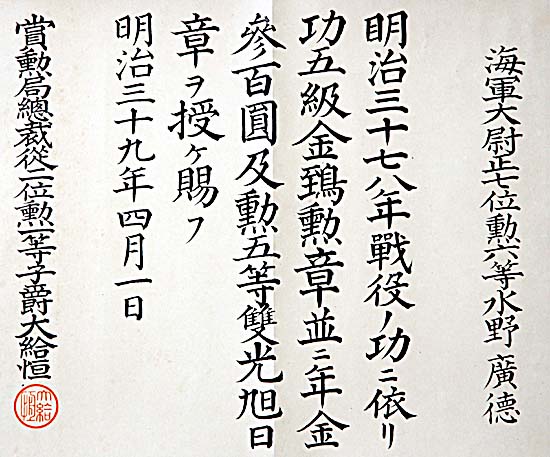 海軍大尉正七位勲六等水野廣德
明治三十七八年戰役ノ功ニ依リ
功五級金鵄勲章並ニ年金
參百圓及勲五等雙光旭日
章ヲ授ケ賜フ
明治三十九年四月一日
賞勲局總裁從二位勲一等子爵大給恒
大給恒